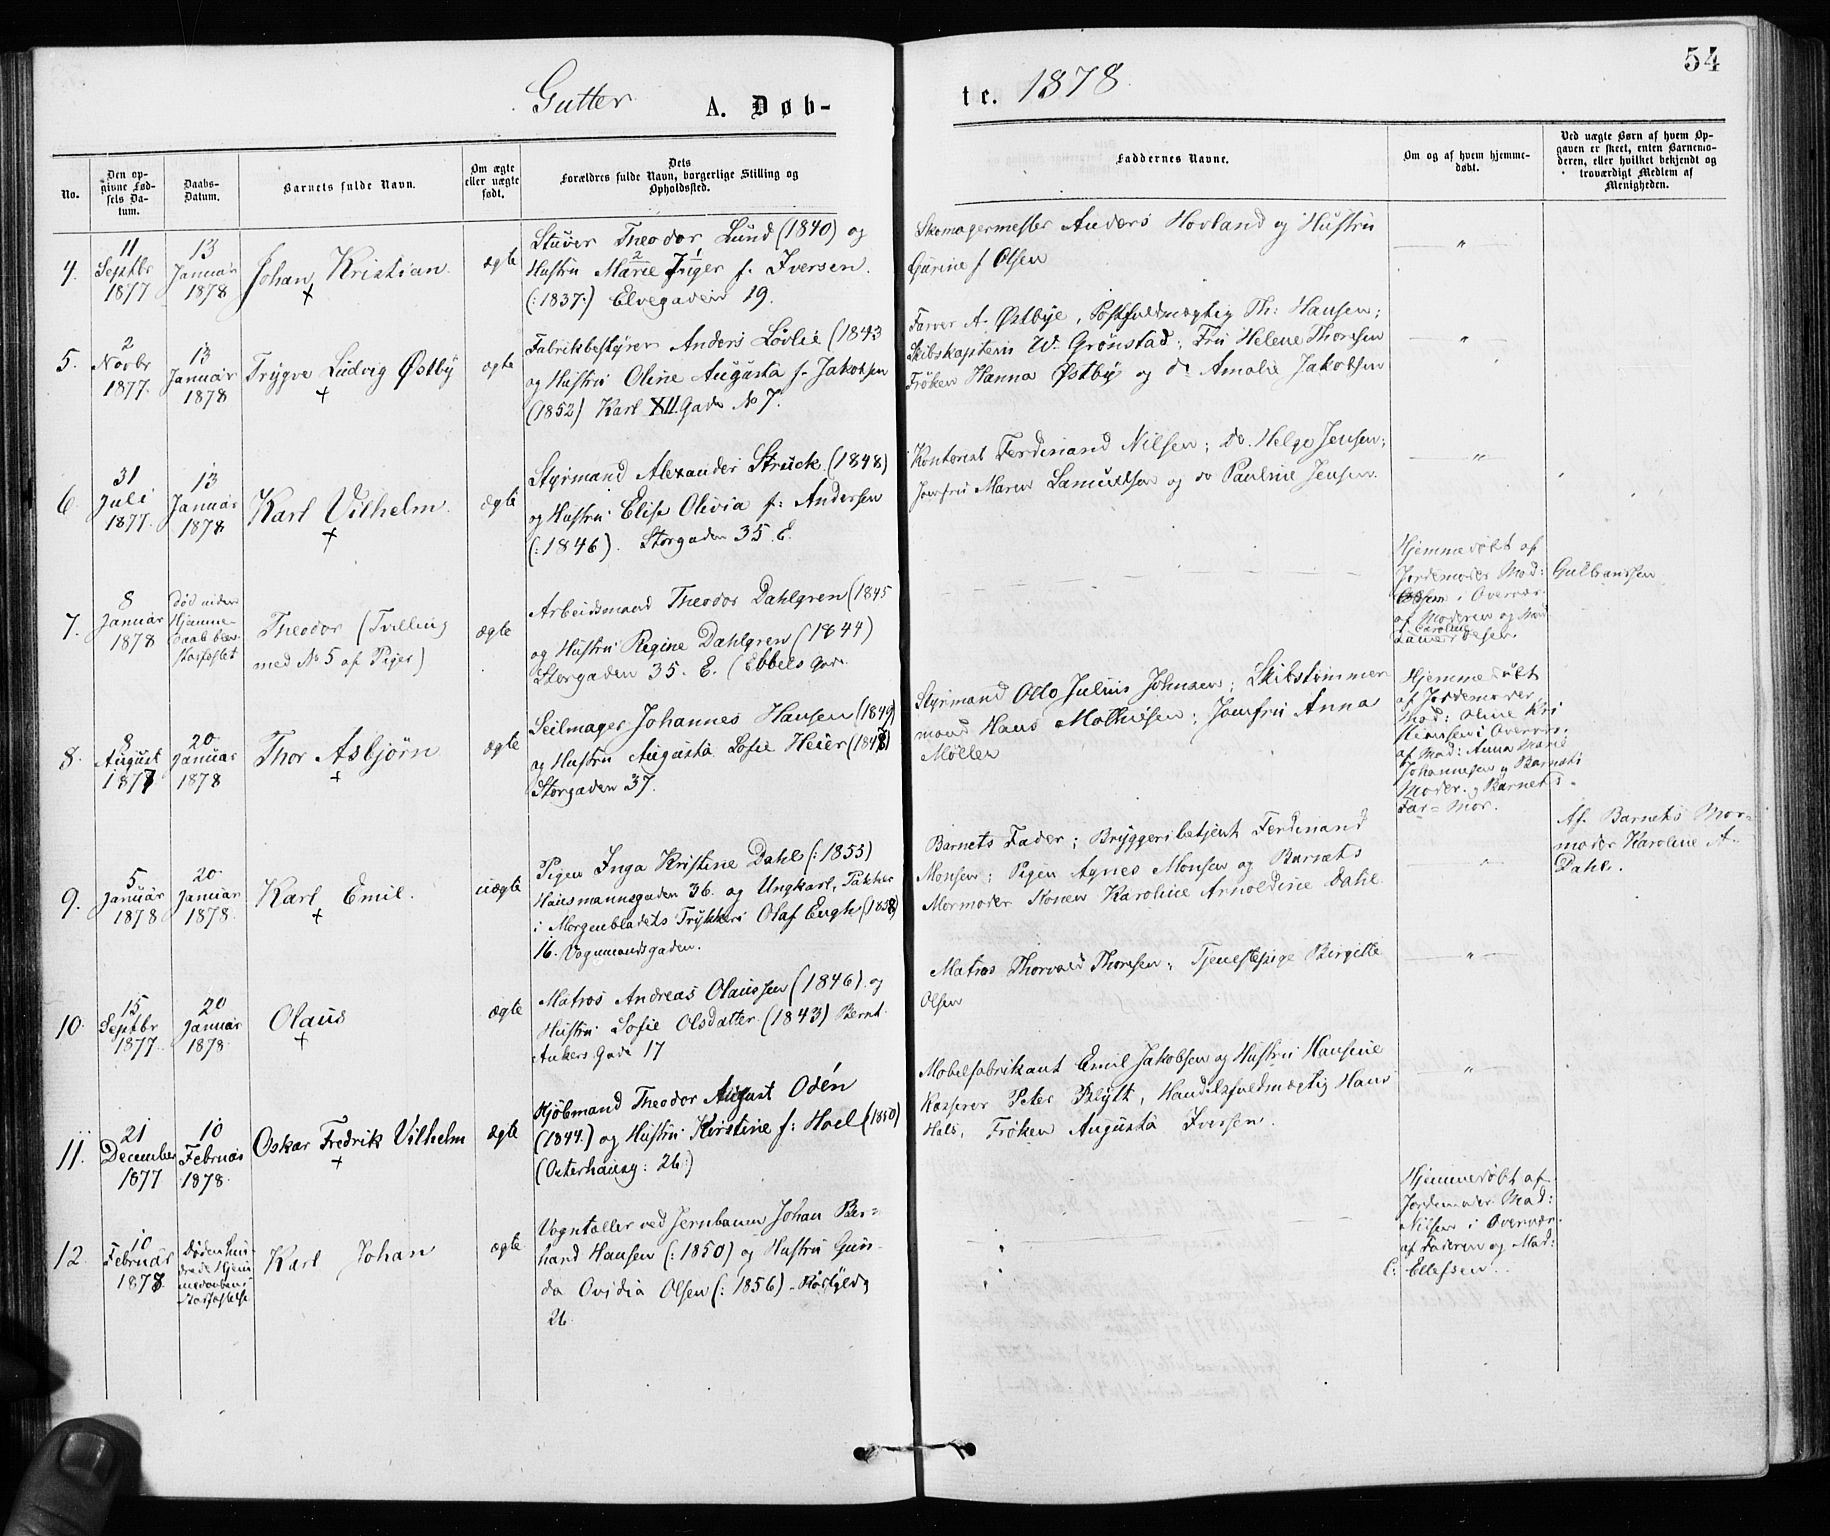 54
Gutter A. Døb-
te. 1878.
No.
Den op-
givne Fød-
sels Da-
tum.
Daabs-
Datum.
Barnets fulde Navn.
Om ægte
eller uægte
født.
Dets
Forældres fulde Navn, borgerlige Stilling og
Opholdssted.
Faddernes Navne.
Om og af hvem hjemme-
døbt.
Ved uægte Børn af hvem Op-
gaven er skeet, enten Barnemo-
deren, eller hvilket bekjendt og
troværdigt Medlem af
Menigheden.
4.
11
Septbr
1877
13
Januar
1878
Johan Kristian.
ægte
Stuver Theodor Lund (1840) og
Hustru Marie Inger f. Iversen.
(:1837:) Elvegaden 19.
Skomagermester Anders Hovland og Hustru
Gurine f Olsen
"
5.
2
Novbr
1877.
13
Januar
1878
Trygve Ludvig Østby
ægte
Fabrikbestyrer Anders Løvlie (1843
og Hustru Oline Augusta f. Jakobsen
(1852) Karl XII Gade No 7.
Farver A. Østbye, Postfuldmægtig Th: Hansen;
Skibskaptein W. Grønstad; Fru Helene Thoresen
Frøken Hanna Østby og do Amalie Jakobsen
"
6.
31
Juli
1877.
13
Januar
1878
Karl Vilhelm.
ægte
Styrmand Alexander Struck (1848)
og Hustru Elise Olivia f: Andersen
(:1846). Storgaden 35. E.
Kontorist Ferdinand Nilsen; do. Helge Jensen;
Jomfru Maren Samuelsen og do Pauline Jensen.
"
7.
8
Januar
1878
død uden
Hjemme-
daab blev
stadfæstet
Theodor (Tvilling
med No 5 af Piger)
ægte
Arbeidsmand Theodor Dahlgren (1845
og Hustru Regine Dahlgren (1844)
Storgaden 35. E. (Ebbels Gade
Hjemmedøbt af
Jordemoder Mad:
i Overvær
af Moderen og Mad
Caroline
Gulbranssen
8.
8
August
1877
20
Januar
1878
Thor Asbjörn
ægte
Seilmager Johannes Hansen (1849)
og Hustru Augusta Sofie Heier (1848)
Storgaden 37.
Styrmand Otto Julius Johnsen; Skibstømmer
mand Hans Mathiesen; Jomfru Anna
Møller
Hjemmedøbt
af Jordemoder
Mad: Oline Kri
stiansen i Overvær
af Mad: Anna Marie
Johannesen og Barnets
Moder. og Barnets
Far-Mor.
9.
5
Januar
1878
20
Januar
1878.
Karl Emil.
uægte
Pigen Inga Kristine Dahl (:1853)
Hausmannsgaden 36. og Ungkarl, Pakker
i Morgenbladets Trykkeri Olaf Engh (1858)
16. Vognmandsgaden.
Barnets Fader; Bryggeribetjent Ferdinand
Monsen; Pigen Agnes Monsen og Barnets
Mormoder Konen Karoline Arnoldine Dahl
"
Af Barnets Mor-
moder Karoline A-
Dahl.
10.
15
Septbr
1877.
20
Januar
1878.
Olaus
ægte
Matros Andreas Olaussen (1846) og
Hustru Sofie Olsdatter (1843) Bernt
Ankers Gade 17
Matros Thorvald Thoresen; Tjenestepige Birgitte
Olsen
"
11.
21
December
1877
10
Februar
1878.
Oskar Fredrik Vilhelm
ægte
Kjøbmand Theodor August Odén
(1844.) og Hustru Kirstine f: Hoel (1850)
(Osterhausg: 26:)
Møbelfabrikant Emil Jakobsen og Hustru Hansine
Kasserer Peter Blytt, Handelsfuldmægtig Hans
Hals, Frøken Augusta Iversen.
"
12.
10
Februar
1878
Karl Johan
ægte
Vogntæller ved Jernbanen Johan Ber-
hard Hansen (:1850) og Hustru Gun-
da Ovidia Olsen (:1856)
26.
Hjemmedøbt af
Jordemoder Mad:
Nilsen i Overvær
af Faderen og Mad:
C: Ellefsen.